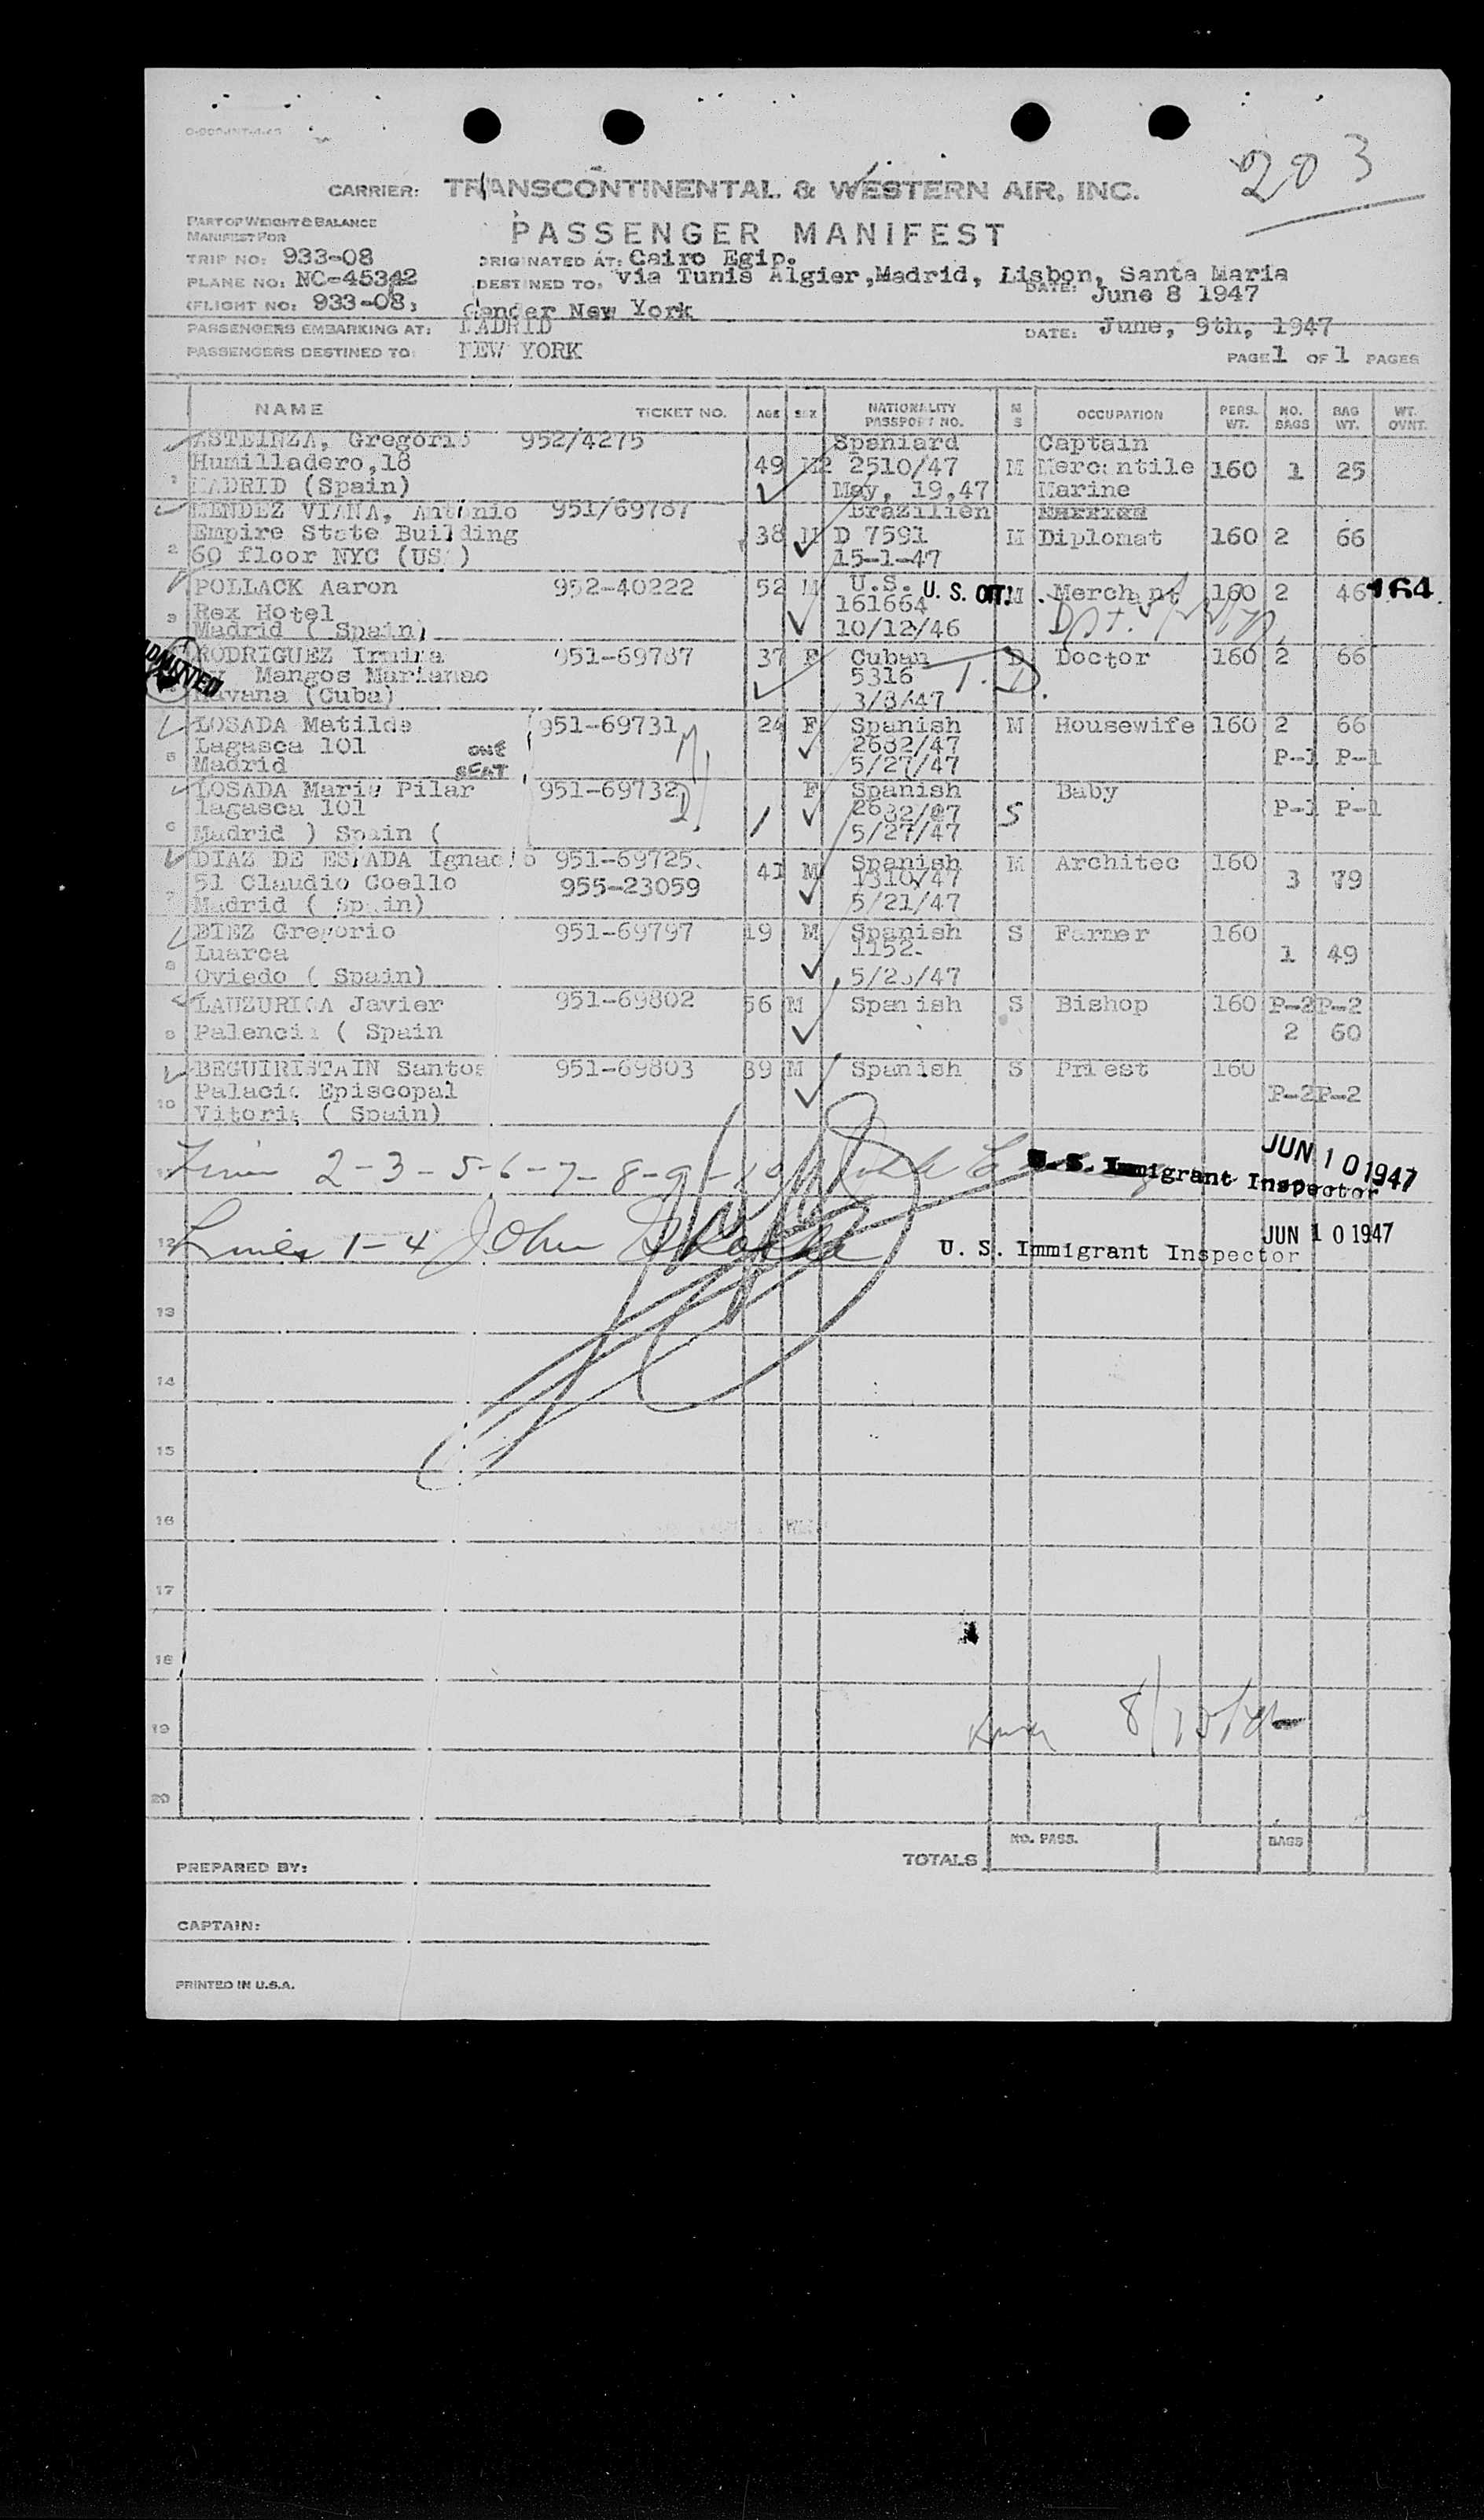 203
CARRIER: TRANSCONTINENTAL & WESTERN AIR, INC.
PART OF WEIGHT & BALANCE
MANIFEST FOR
PASSENGER MANIFEST
TRIP NO: 933-08
ORIGINATED AT: Cairo Egip.
PLANE NO: NC-45342
DESTINED TO: via Tunis Algier,Madrid, Lisbon, Santa Maria
DATE: June 8 1947
(FLIGHT NO: 933-08)
Gander New York
PASSENGERS EMBARKING AT: MADRID
DATE: June, 9th, 1947
PASSENGERS DESTINED TO: NEW YORK
PAGE 1 OF 1 PAGES
NAME TICKET NO. AGE SEX NATIONALITY PASSPORT NO. M S OCCUPATION PERS. WT. NO. BAGS BAG WT. WT. OVNT.
ASTEINZA, Gregorio 952/4275 Spaniard Captain
Humilladero,18 49 M 2510/47 M Mercantile 160 1 25
1 MADRID (Spain) May, 19,47 Marine
MENDEZ VIANA, Antonio 951/69787 Brazilien
Empire State Building 38 M D 7591 M Diplomat 160 2 66
2 60 floor NYC (US ) 15-1-47
POLLACK Aaron 952-40222 52 M U.S. U. S. CIT. M Merchant 160 2 46 164
3 Rex Hotel 161664
Madrid ( Spain) 10/12/46
ADMITTED
RODRIGUEZ 951-69787 37 F Cuban D Doctor 160 2 66
Mangos Marianao 5316 T. D.
Havana (Cuba) 3/8/47
LOSADA Matilde 951-69731 24 F Spanish M Housewife 160 2 66
Lagasca 101 ONE 2632/47
5 Madrid SEAT 5/27/47 P-1 P-1
LOSADA Maria Pilar 951-69732 F Spanish Baby
lagasca 101 2632/47 S P-1 P-1
6 Madrid ) Spain ( 5/27/47
DIAZ DE ESPADA Ignacio 951-69725 41 M Spanish M Architec 160
51 Claudio Coello 955-23059 1310/47 3 79
Madrid ( Spain) 5/21/47
DIEZ Gregorio 951-69797 19 M Spanish S Farmer 160
Luarca 1152- 1 49
8 Oviedo ( Spain)
LAUZURICA Javier 951-69802 56 M Spanish S Bishop 160 P-2 P-2
9 Palencia ( Spain 2 60
BEGUIRISTAIN Santos 951-69803 39 M Spanish S Priest 160
Palacio Episcopal P-2 P-2
10 Vitoria ( Spain)
2-3-5-6-7-8-9-10
U. S. Immigrant Inspector JUN 10 1947
12 Lines 1-4 John
U. S. Immigrant Inspector JUN 10 1947
13
14
15
16
17
18
19
20
TOTALS NO. PASS. BAGS
PREPARED BY:
CAPTAIN:
PRINTED IN U.S.A.